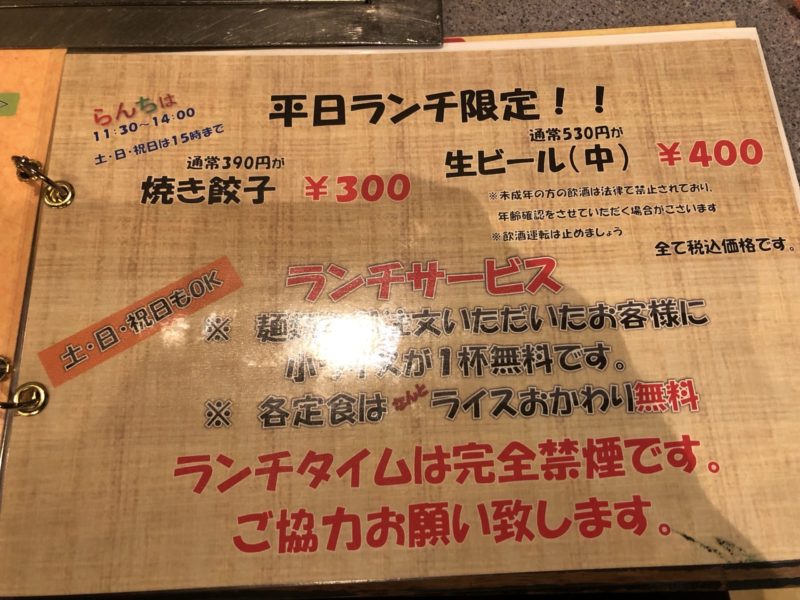 らんちは
11:30～14:00
土・日・祝日は15時まで
平日ランチ限定！！
通常390円が
焼き餃子 ￥300
通常530円が
生ビール(中) ￥400
※未成年の方の飲酒は法律で禁止されており、
年齢確認をさせていただく場合がございます
※飲酒運転は止めましょう
全て税込価格です。
土・日・祝日もOK
ランチサービス
※ 麺 注文いただいたお客様に
小 スが1杯無料です。
※ 各定食は なんと ライスおかわり無料
ランチタイムは完全禁煙です。
ご協力お願い致します。